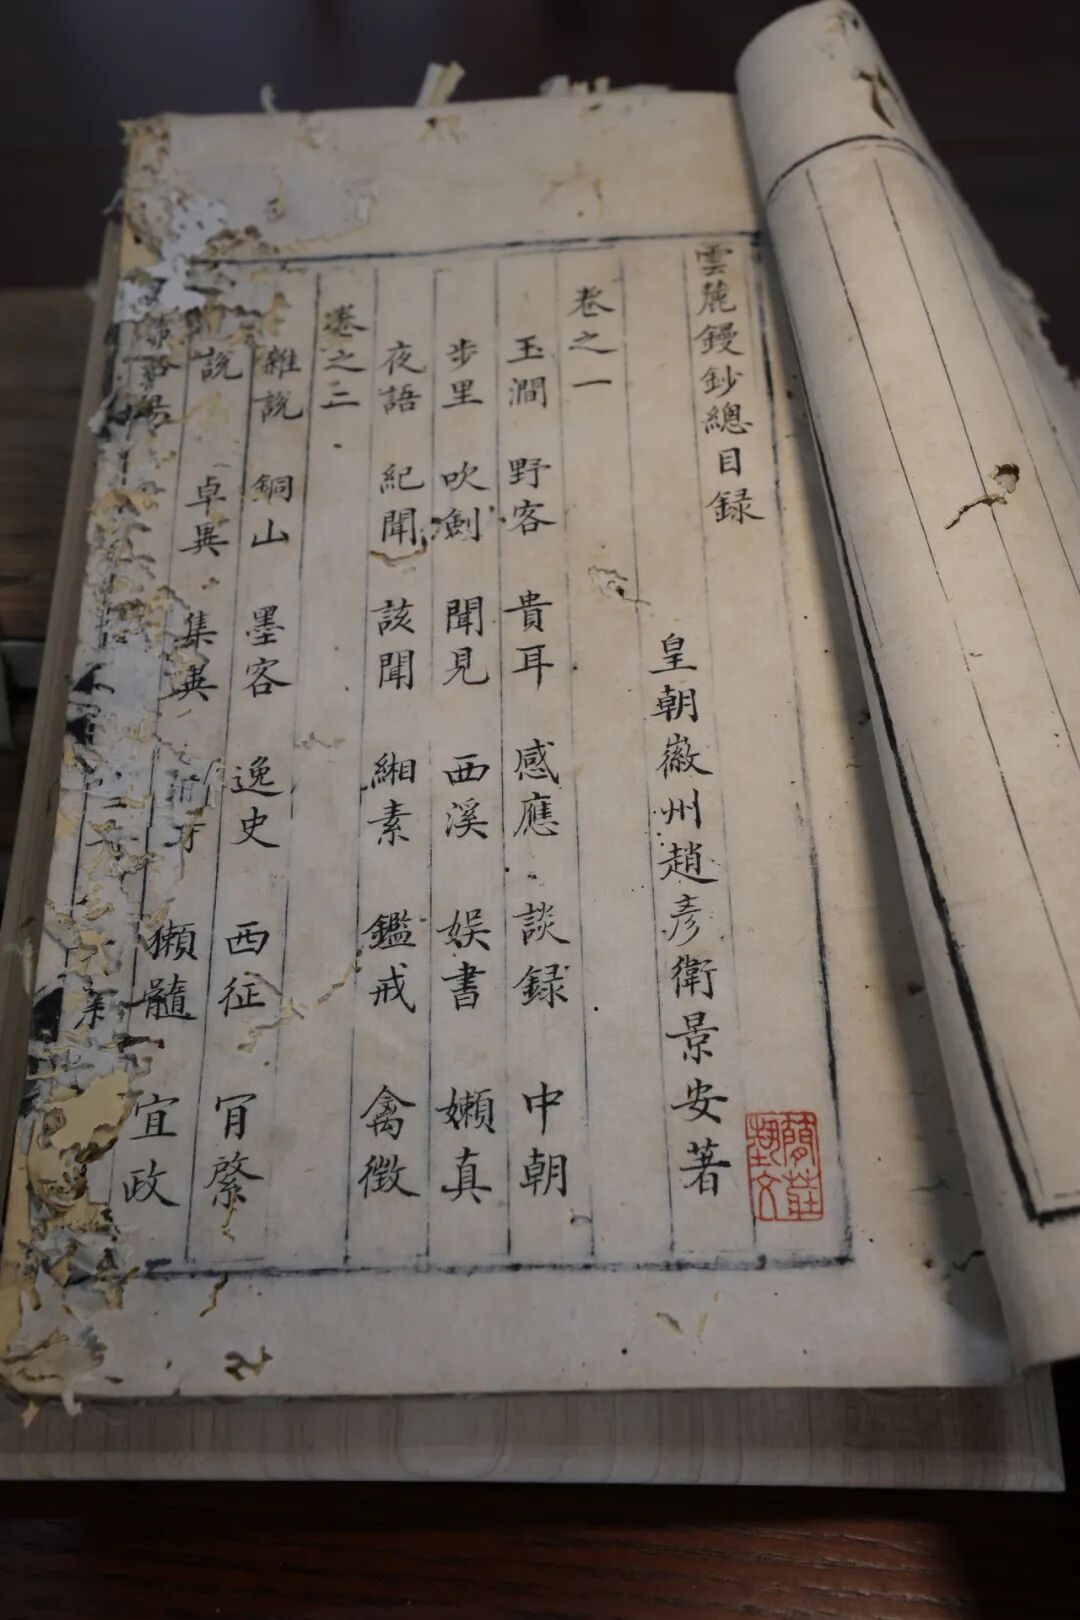 雲麓鏝鈔總目録
皇朝徽州趙彥衛景安著
卷之一
玉澗 野客 貴耳 感應 談録 中朝
步里 吹劍 聞見 西溪 娛書 嬾真
夜語 紀聞 該聞 緗素 鑑戒 禽徵
卷之二
雜説 銅山 墨客 逸史 西征 肎綮
説 卓異 集異 獺髓 宜政
簡莊 蓺文